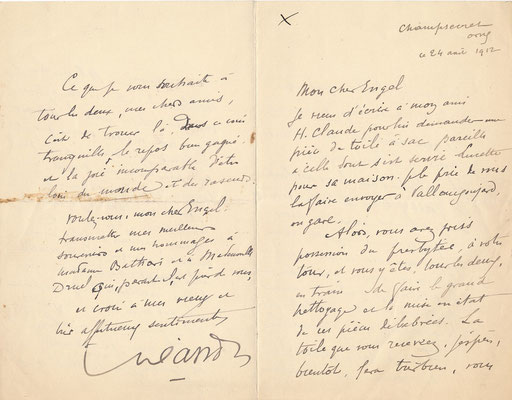 Champsecret
Orne
le 24 août 1912
Mon cher Engel
Je viens d'écrire à mon ami
H. Claude pour lui demander une
pièce de toile à sac pareille
à celle dont s'est servie
pour sa maison. je le prie de vous
la faire envoyer à Vallangoujard,
en gare.
Alors, vous avez pris
possession du presbytère, à votre
tour, et vous y êtes, tous les deux,
en train de faire le grand
nettoyage et la mise en état
de ces pièces délabrées. La
toile que vous recevrez, j'espère,
bientôt, fera très bien, vous
X
Ce que je vous souhaite à
tous les deux, mes chers amis,
c'est de trouver là, dans ce coin
tranquille, le repos bien gagné
et la joie incomparable d'être
loin du monde et des raseurs.
Voulez-vous, mon cher Engel,
transmettre mes meilleurs
souvenirs et mes hommages à
madame Bathori et à Mademoiselle
qui, paraît-il, est près de vous,
et croire à mes vieux et
bien affectueux sentiments